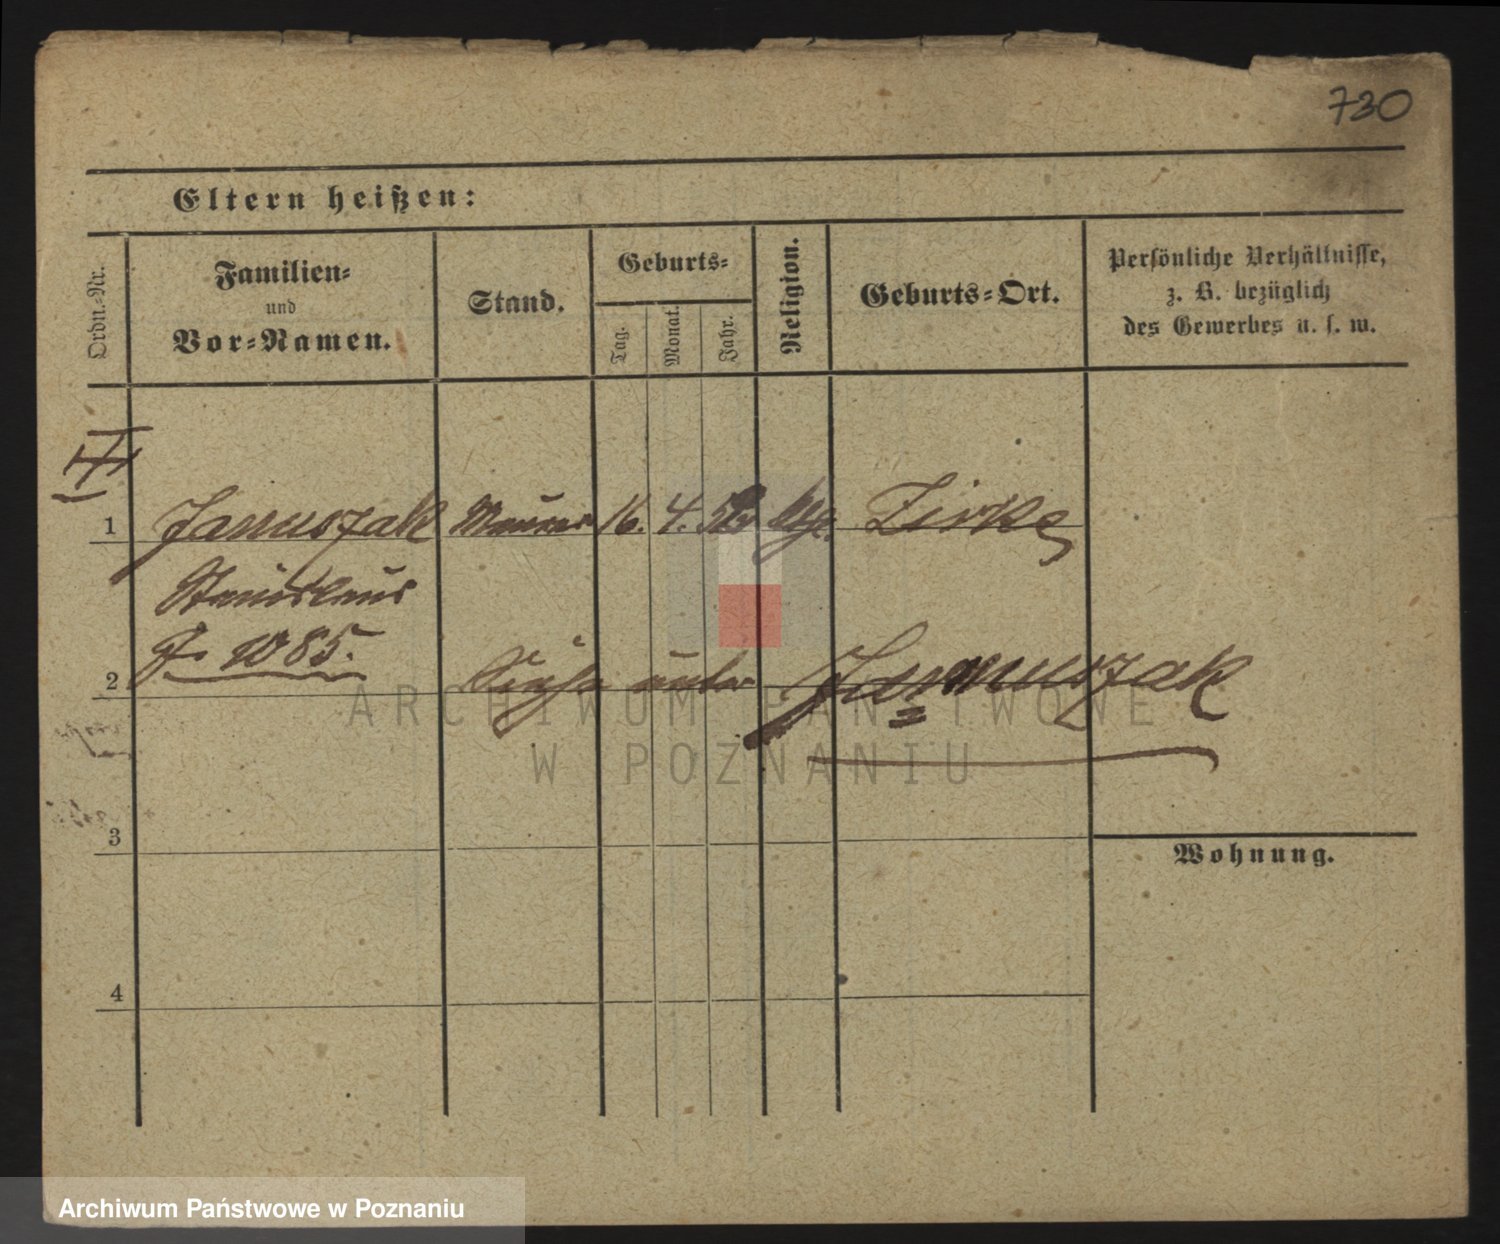 730
Eltern heißen:
Ordn.-Nr.
Familien-
und
Vor-Namen.
Stand.
Geburts-
Tag.
Monat.
Jahr.
Religion.
Geburts-Ort.
Persönliche Verhältnisse,
z. B. bezüglich
des Gewerbes u. s. w.
1
Januszak Maurer 16. 4. Zirke
Stanislaus
85.
2
Siehe unter Januszak
3
Wohnung.
4
ARCHIWUM PAŃSTWOWE
W POZNANIU
Archiwum Państwowe w Poznaniu